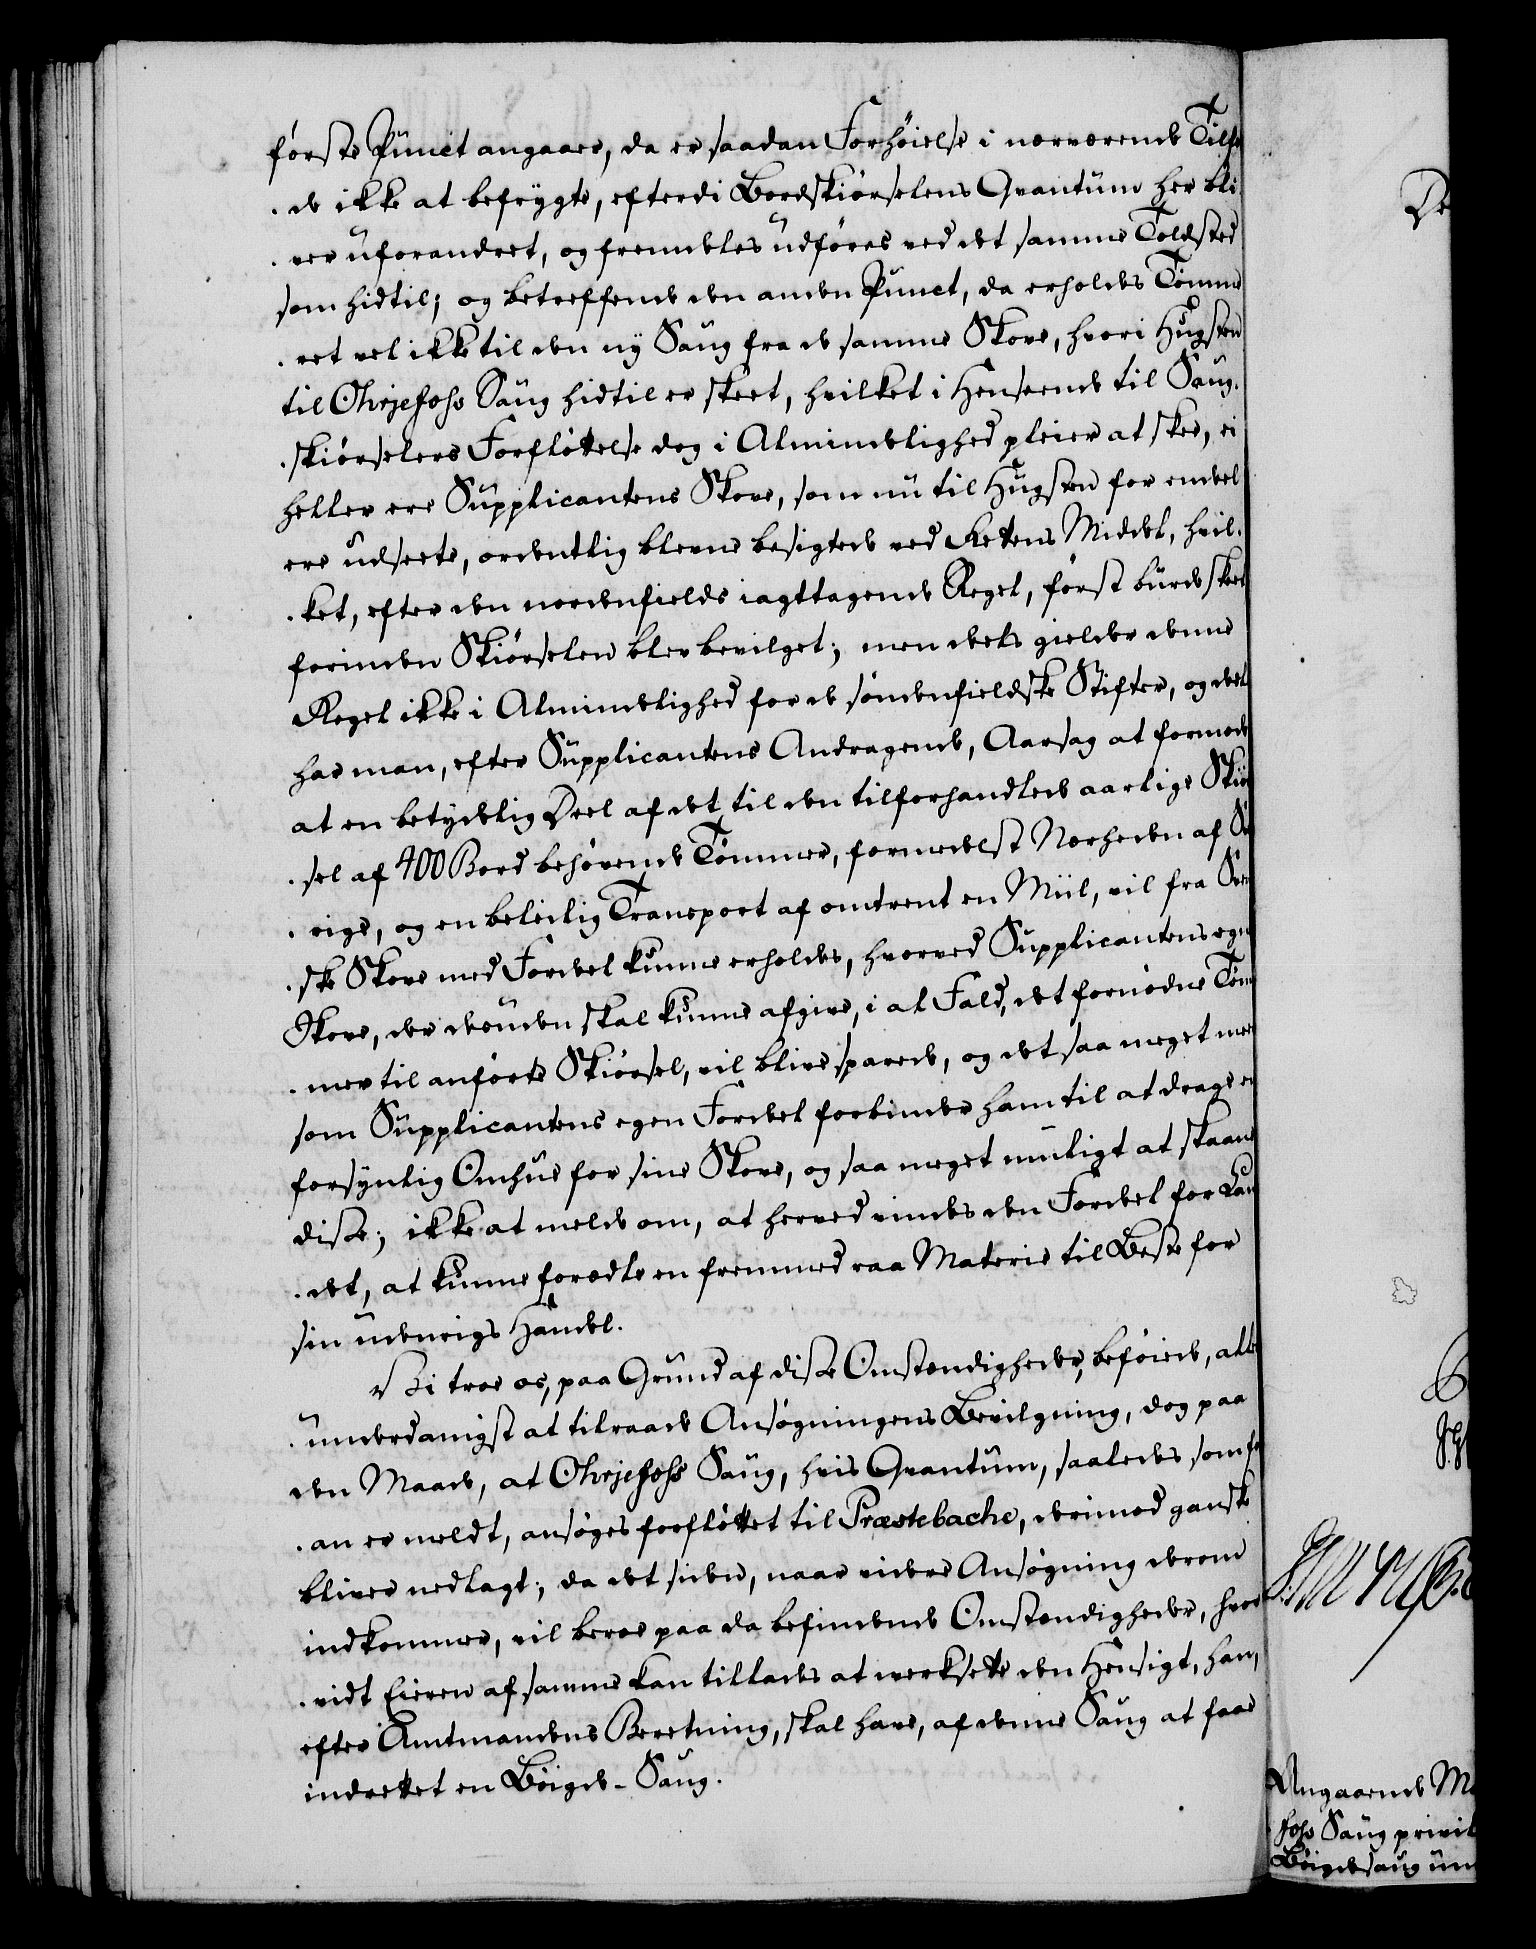 første Punct angaaer, da er saadan Forhøielse i nærværende Tilfæ
de ikke at befrygte, efterdi Bordskiørselens Qvantum her bli
ver uforandret, og fremdeles udføres ved det samme Toldsted
som hidtil; og betreffende den anden Punct, da erholdes Tømme
ret vel ikke til den ny Saug fra de samme Skove, hvori Hugsten
til Ohrjefoss Saug hidtil er skeet, hvilket i Henseende til Saug-
skiørselers Forfløttelse dog i Almindelighed pleier at skee, ei
heller ere Supplicantens Skove, som nu til Hugsten for endeel
ere udseete, ordentlig blevne besigtede ved Rettens Middel, hvil-
ket, efter den nordenfields iagttagende Regel, først burde skeet
forinden Skiørselen blev bevilget; men deels gielder denne
Regel ikke i Almindelighed for de søndenfieldske Stifter, og deels
har man, efter Supplicantens Andragende, Aarsag at formode
at en betydelig Deel af det, til den tilforhandlede aarlige Skiør
sel af 400 Bord behøvende Tømmer, formedelst Nærheden af Sve
rige, og en beleilig Transport af omtrent en Miil, vil fra Sven
ske Skove med Fordeel kunne erholdes, hvorved Supplicantens egne
Skove, der desuden skal kunne afgive, i al Fald, det fornødne Tøm
mer til anførte Skiørsel, vil blive sparede, og det saa meget meer
som Supplicantens egen Fordeel forbinder ham til at drage en
forsynlig Omhue for sine Skove, og saa meget muligt at skaane
disse; ikke at melde om, at herved vindes den Fordeel for Lan
det, at kunne forædle en fremmed raa Materie til Beste for
sin udenrigs Handel.
Vi troe os, paa Grund af disse Omstændigheder, beføiede, aller
underdanigst at tilraade Ansøgningens Bevilgning, dog paa
den Maade, at Ohrjefoss Saug, hvis Qvantum, saaledes som for
an er meldt, ansøges forfløttet til Præstebache, derimod ganske
bliver nedlagt; da det siden, naar videre Ansøgning derom
indkommer, vil beroe paa da befindende Omstændigheder, hvor
vidt Eieren af samme kan tillades at værksette den Hensigt, han,
efter Amtmandens Beretning, skal have, af denne Saug at faae
indrettet en Bøigde-Saug.
De
Angaaende M
foss Saug privil
Bøigdesaug un